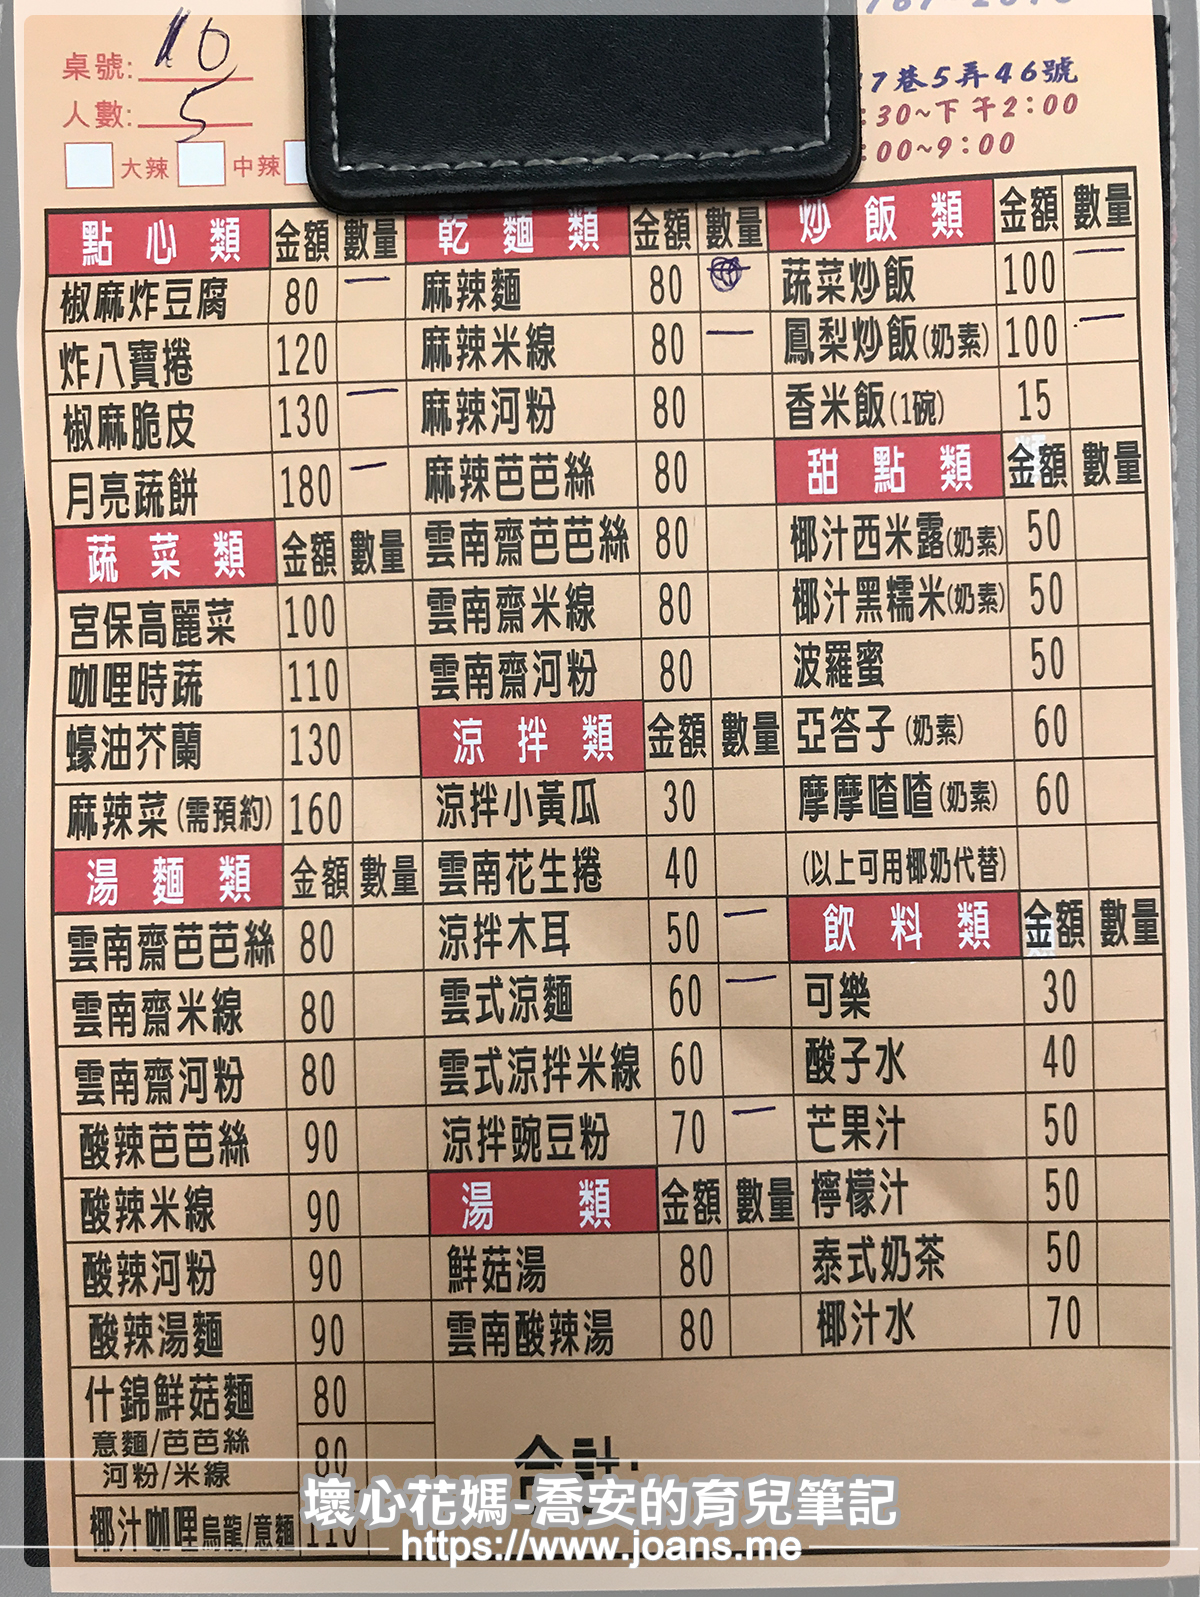 桌號: 10
人數: 5
大辣 中辣
7巷5弄46號
:30~下午2:00
:00~9:00
點心類 金額 數量
椒麻炸豆腐 80 一
炸八寶捲 120
椒麻脆皮 130 一
月亮蔬餅 180 一
蔬菜類 金額 數量
宮保高麗菜 100
咖哩時蔬 110
蠔油芥蘭 130
麻辣菜(需預約) 160
湯麵類 金額 數量
雲南齋芭芭絲 80
雲南齋米線 80
雲南齋河粉 80
酸辣芭芭絲 90
酸辣米線 90
酸辣河粉 90
酸辣湯麵 90
什錦鮮菇麵 80
意麵/芭芭絲
河粉/米線 80
椰汁咖哩烏龍/意麵 110
乾麵類 金額 數量
麻辣麵 80
麻辣米線 80 一
麻辣河粉 80
麻辣芭芭絲 80
雲南齋芭芭絲 80
雲南齋米線 80
雲南齋河粉 80
涼拌類 金額 數量
涼拌小黃瓜 30
雲南花生捲 40
涼拌木耳 50 一
雲式涼麵 60 一
雲式涼拌米線 60
涼拌豌豆粉 70 一
湯類 金額 數量
鮮菇湯 80
雲南酸辣湯 80
合計:
炒飯類 金額 數量
蔬菜炒飯 100 一
鳳梨炒飯(奶素) 100 一
香米飯(1碗) 15
甜點類 金額 數量
椰汁西米露(奶素) 50
椰汁黑糯米(奶素) 50
波羅蜜 50
亞答子(奶素) 60
摩摩喳喳(奶素) 60
(以上可用椰奶代替)
飲料類 金額 數量
可樂 30
酸子水 40
芒果汁 50
檸檬汁 50
泰式奶茶 50
椰汁水 70
壞心花媽-喬安的育兒筆記
https://www.joans.me